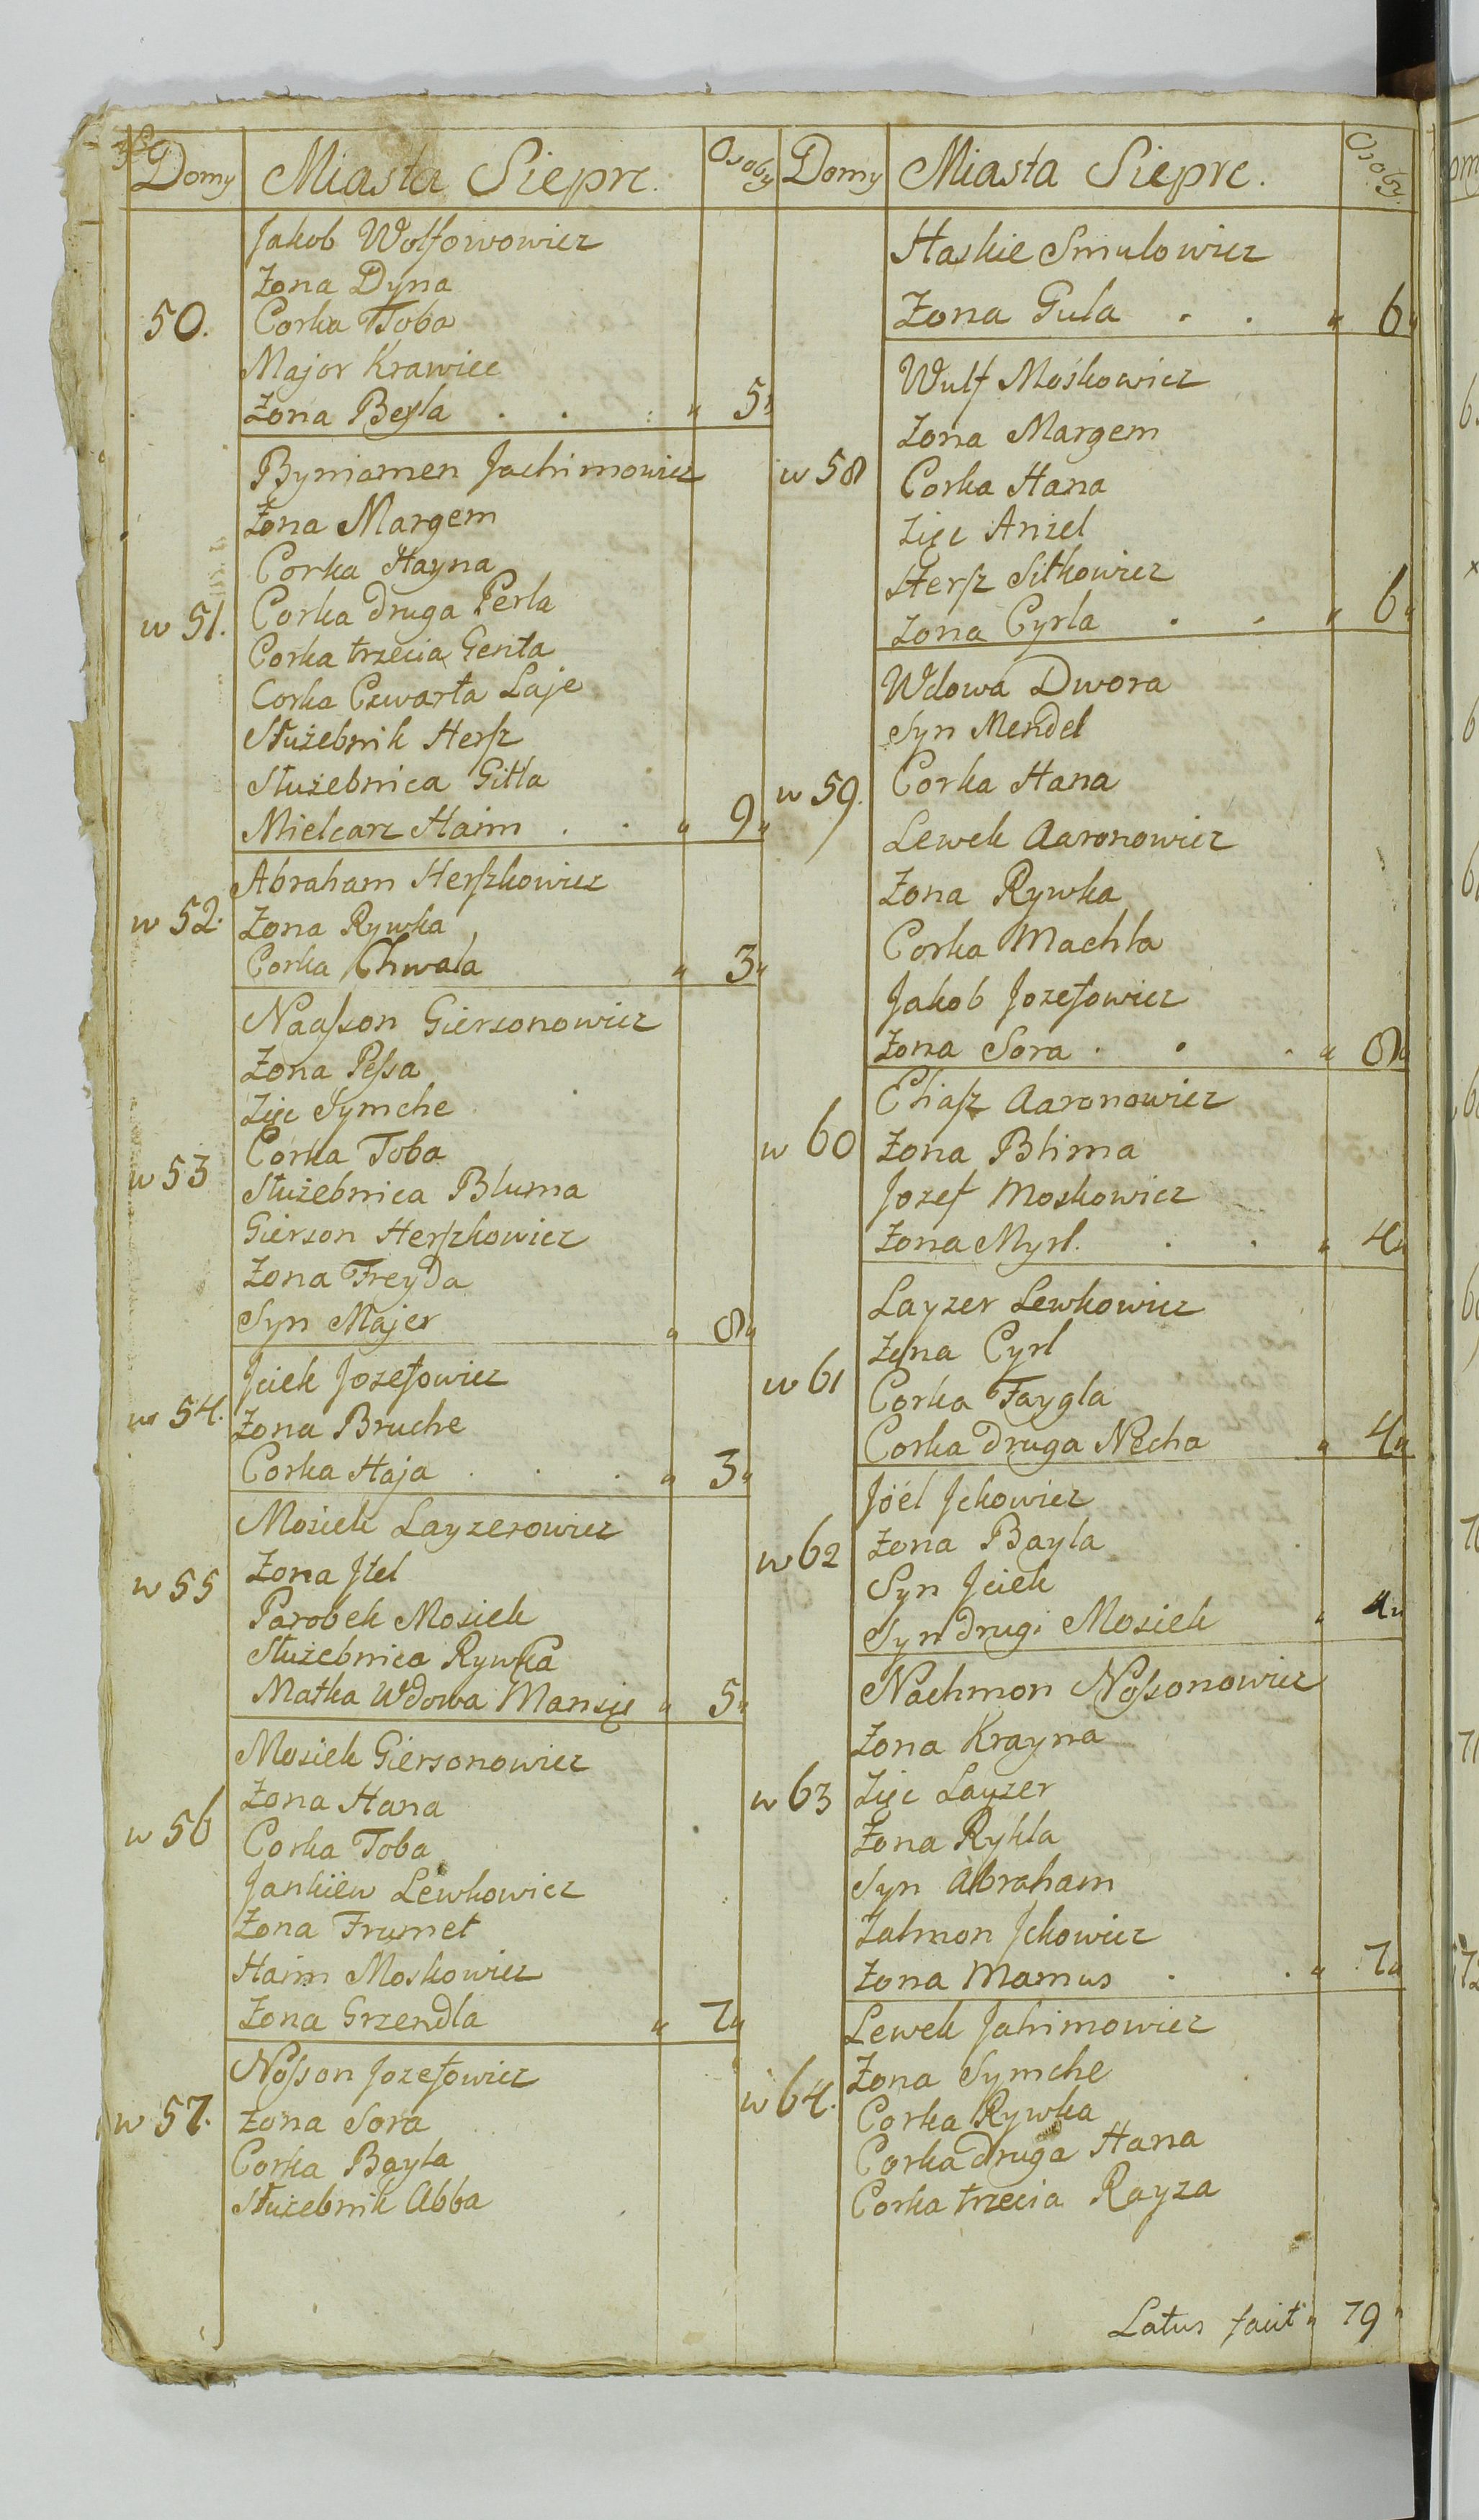 Domy Miasta Sieprc. Osoby
Jakob Wolfowowicz
Żona Dyna
50. Corka Toba
Major Krawiec
Żona Beyla . . : " 5"
Byniamen Jachimowicz
Żona Margem
Corka Hayna
w 51. Corka druga Perla
Corka trzecia Genta
Corka Czwarta Laje
Służebnik Hersz
Służebnica Gitla
Mielcarz Haim . . " 9"
Abraham Herszkowicz
w 52. Żona Rywka
Corka Chwala " 3"
Naasson Giersonowicz
Żona Pessa
Zięc Symche
Corka Toba
w 53 Służebnica Bluma
Gierson Herszkowicz
Żona Freyda
Syn Majer " 8"
Jciek Jozefowicz
w 54. Żona Bruche
Corka Haja . . . " 3"
Mosiek Layzerowicz
w 55 Żona Jtel
Parobek Mosiek
Służebnica Rywka
Matka Wdowa Mansię " 5"
Mosiek Giersonowicz
Żona Hana
w 56 Corka Toba
Jankiew Lewkowicz
Żona Frumet
Haim Moskowicz
Żona Grzendla " 7"
Nosson Jozefowicz
w 57. Żona Sora
Corka Bayla
Służebnik Abba
Domy Miasta Sieprc. Osoby
Haskie Smulowicz
Żona Gula . . " 6"
Wulf Mośkowicz
Żona Margem
w 58 Corka Hana
Zięc Anzel
Hersz Sitkowicz
Żona Cyrla . . " 6"
Wdowa Dwora
Syn Mendel
w 59. Corka Hana
Lewek Aaronowicz
Żona Rywka
Corka Machla
Jakob Jozefowicz
Żona Sora . . . " 8"
Eliasz Aaronowicz
w 60 Żona Blima
Jozef Moskowicz
Żona Myrl. . . " 4"
Layzer Lewkowicz
Żona Cyrl
w 61 Corka Faygla
Corka druga Necha " 4"
Joël Jckowicz
w 62 Żona Bayla
Syn Jciek
Syn drugi Mosiek " 4"
Nachmon Nossonowicz
Żona Krayna
w 63 Zięc Layzer
Żona Rykla
Syn Abraham
Zalmon Jckowicz
Żona Mamus . . " 7"
Lewek Jahimowicz
Żona Symche
w 64. Corka Rywka
Corka druga Hana
Corka trzecia Rayza
Latus facit " 79"